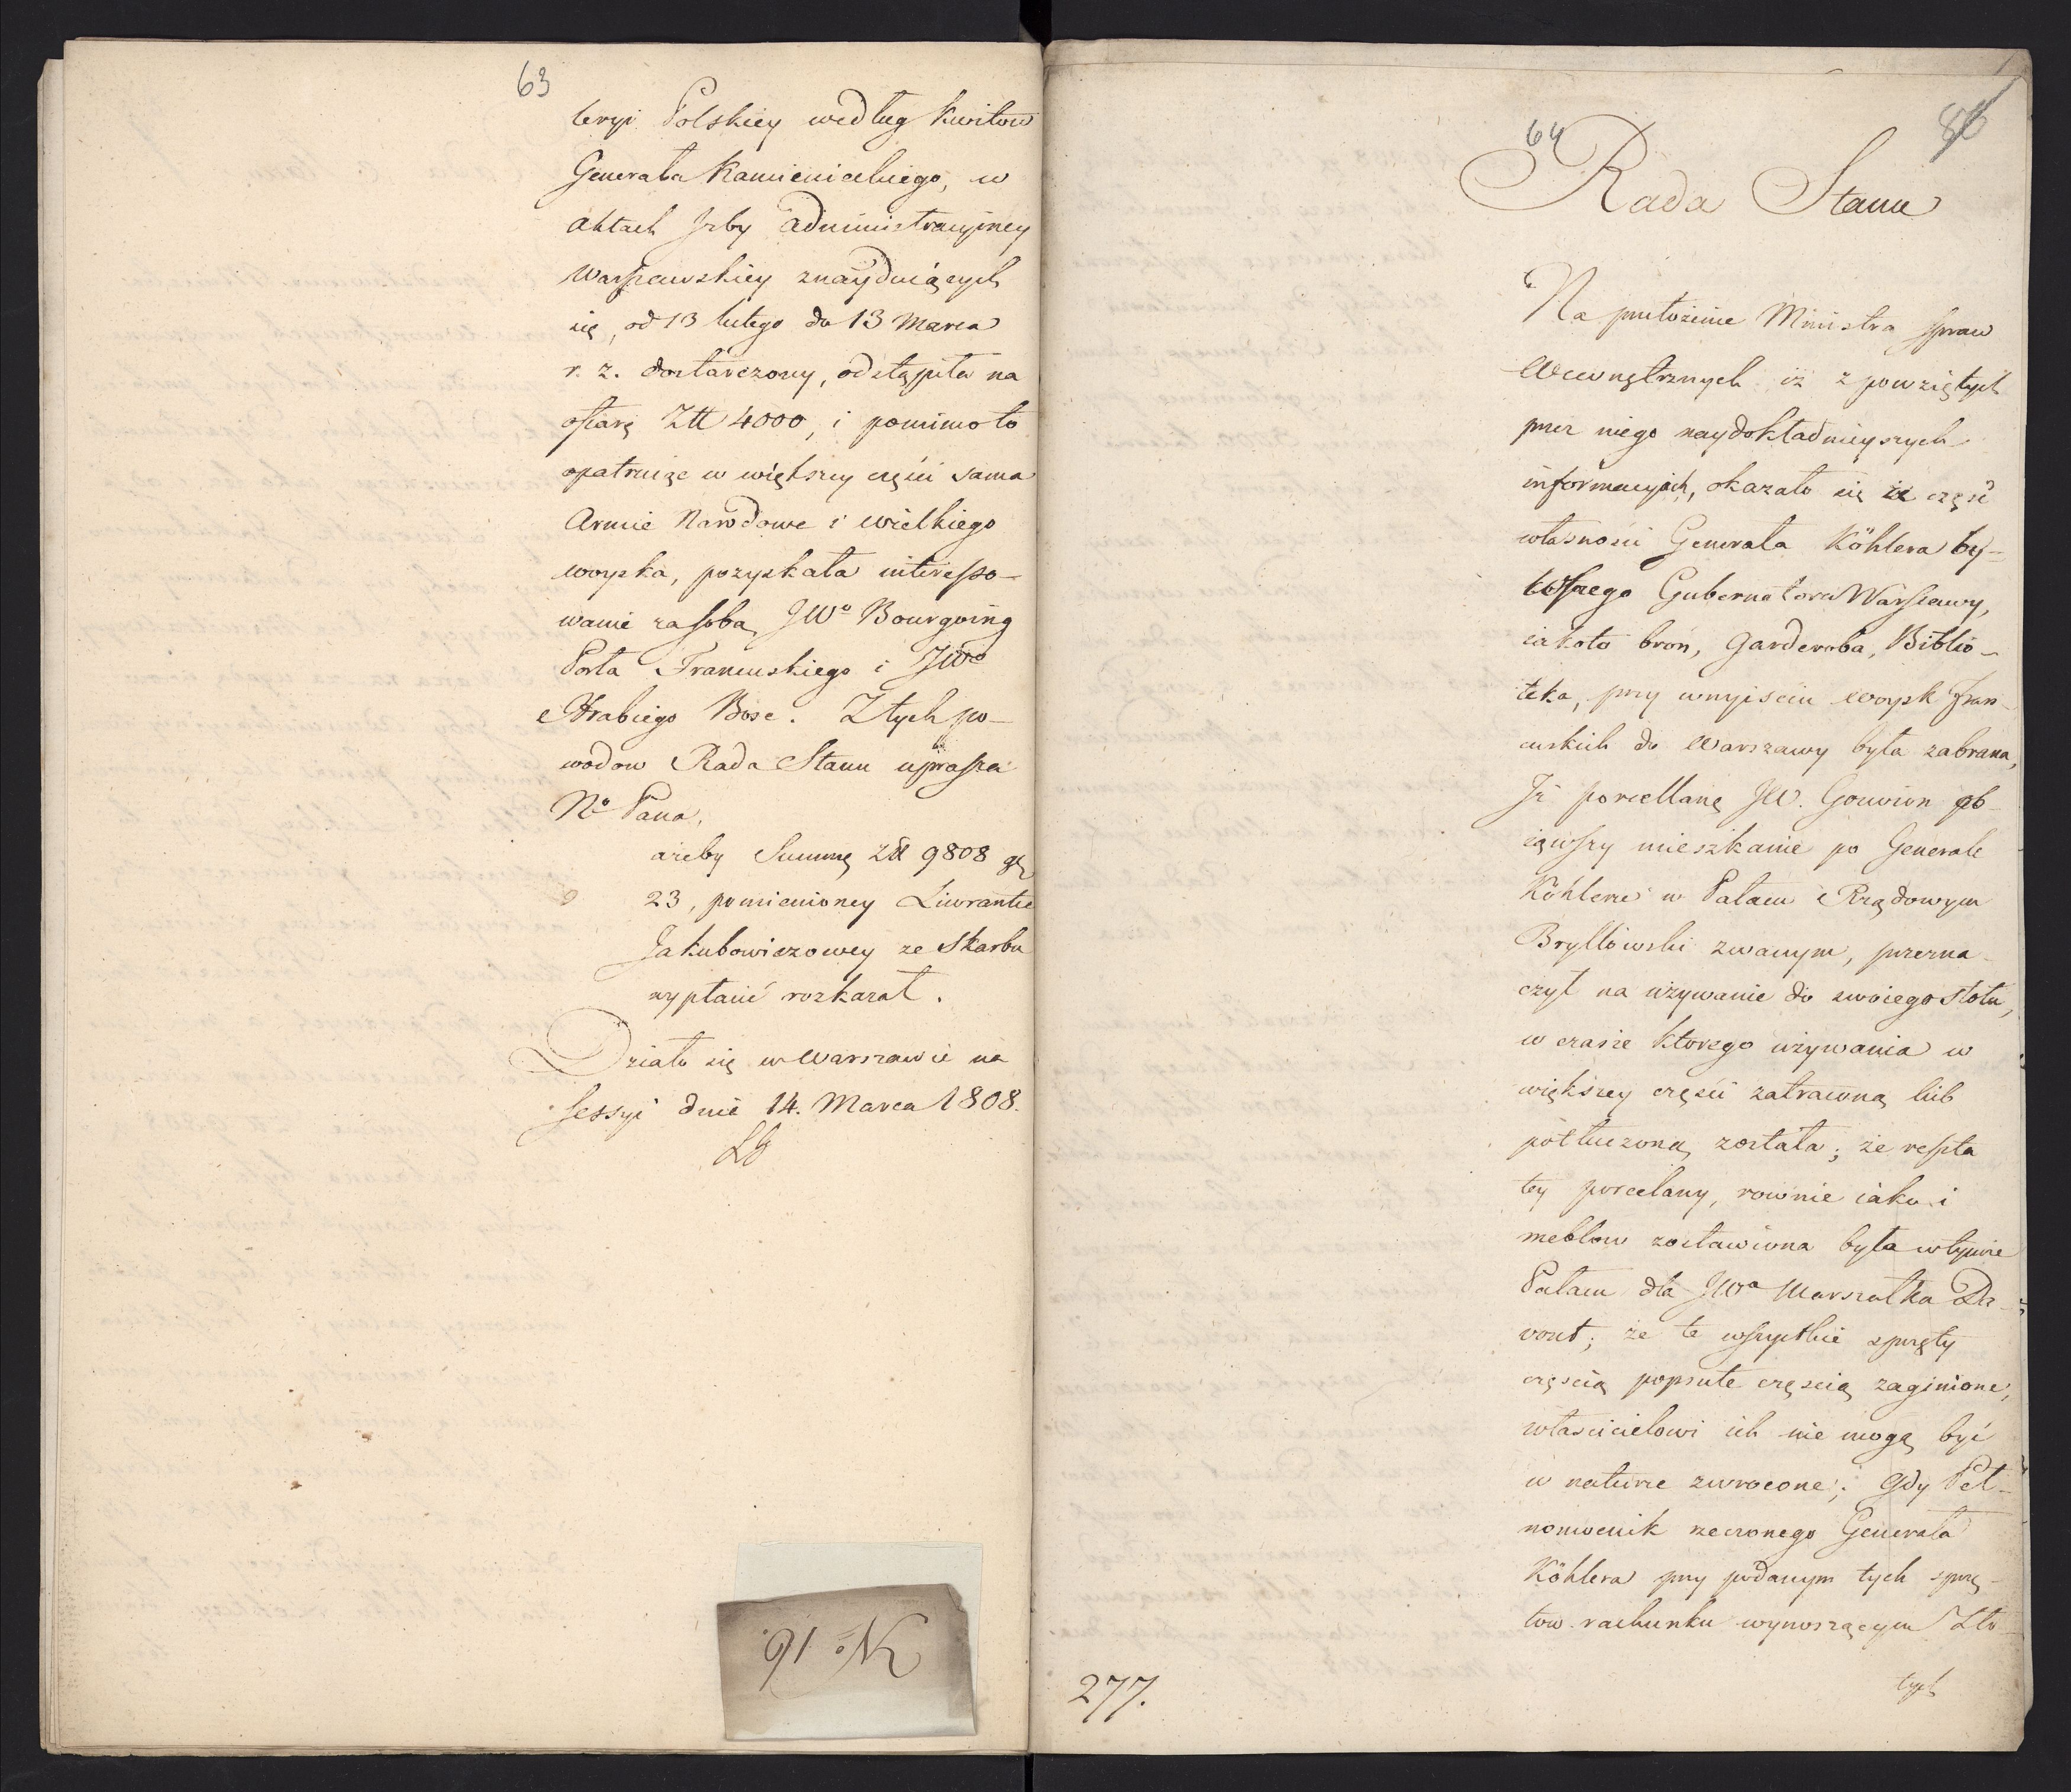 63
leryi Polskiey według kwitow
Generała Kamienieckiego, w
aktach Jzby administracyiney
Warszawskiey znayduiących
się, od 13 lutego do 13 Marca
r. z. dostarczony, odstąpiła na
ofiarę Złł 4000, i pomimo to
opatruiąc w większey części sama
Armie Narodowe i wielkiego
woyska, pozyskała interesso-
wanie za sobą JWo Bourgoing
Posła Francuskiego i JWo
Hrabiego Bose. Z tych po-
wodow Rada Stanu uprasza
No Pana,
ażeby Summę złł 9808 gr
23, pomienioney Liwrantce
Jakubowiczowey ze Skarbu
wypłacić rozkazał.
Działo się w Warszawie na
sessyi dnia 14. Marca 1808.
No 16.
64
86
Rada Stanu
Na przełożenie Ministra Spraw
Wewnętrznych iż z powziętych
przez niego naydokładnieyszych
informacyach, okazało się że część
własności Generała Köhlera by-
łwszego Gubernatora Warszawy,
iakoto broń, Garderoba, Biblio-
teka, przy wnyiściu woysk fran-
cuskich do Warszawy była zabrana,
Jż porcellanę JW. Gouvion ob-
iąwszy mieszkanie po Generale
Köhlerze w Pałacu Rządowym
Bryllowski zwanym, przezna-
czył na używanie do swoiego stołu,
w czasie ktorego używania w
większey części zatracona lub
potłuczona została; że reszta
tey porcelany, rownie iako i
meblow zostawiona była w tymże
Pałacu dla JWa Marszałka Da-
voust; że te wszystkie sprzęty
częścią popsute częścią zaginione,
właścicielowi ich nie mogą być
w naturze zwrocone; Gdy Peł-
nomocnik rzeczonego Generała
Köhlera przy podanym tych sprzę-
tow rachunku wynoszącym Zło-
tych
277.